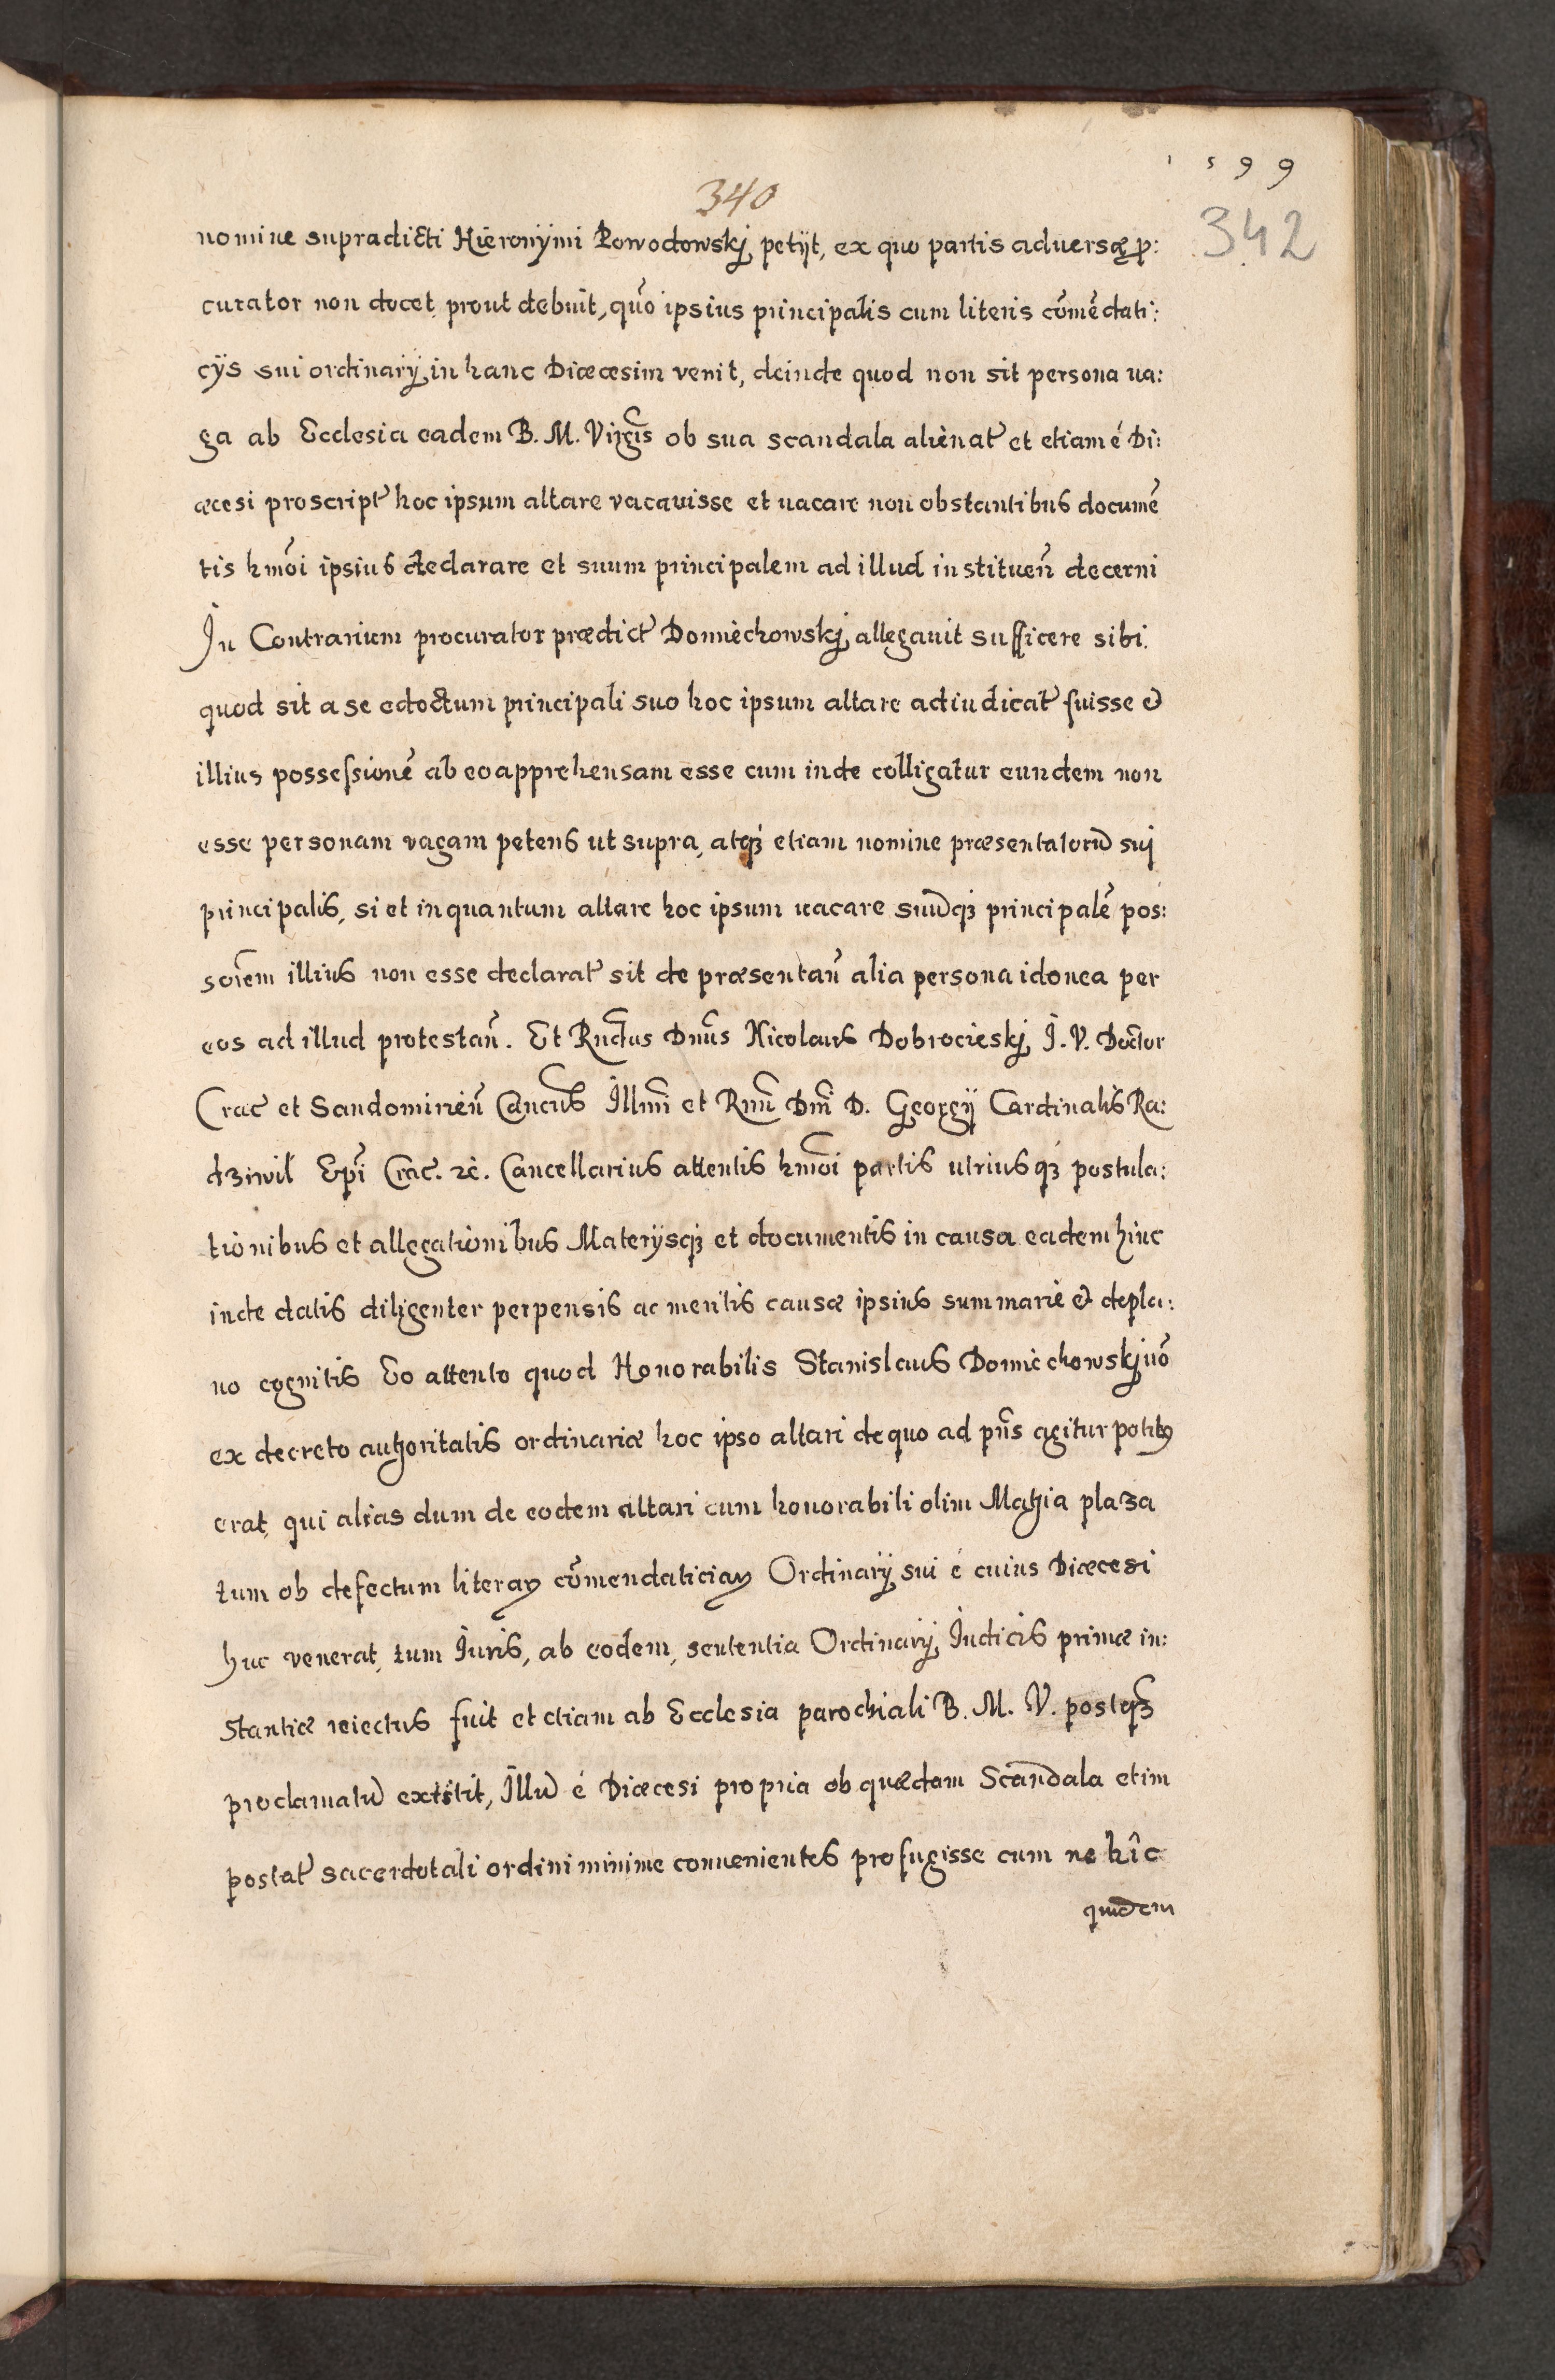 1 5 9 9
340
342
nomine supradicti Hieronymi Powodowskj petijt, ex quo partis aduersæ p:
curator non docet prout debuit, quõ ipsius principalis cum literis cõmẽdati:
cijs sui ordinarij in hanc Diœcesim venit, deinde quod non sit persona ua:
ga ab Ecclesia eadem B. M. Virgis ob sua scandala alienat̃ et etiam é Di:
œcesi proscript̃ hoc ipsum altare vacauisse et uacare non obstantibus documẽ
tis hmõi ipsius declarare et suum principalem ad illud instituen̄ decerni
In Contrarium procurator prædict̃ Domiechowskj allegauit sufficere sibi.
quod sit a se edoctum principali suo hoc ipsum altare adiudicat̃ fuisse &
illius possessionẽ ab eo apprehensam esse cum inde colligatur eundem non
esse personam vagam petens ut supra, atq3 etiam nomine præsentatorũ suj
principalis, si et inquantum altare hoc ipsum uacare suũq3 principalẽ pos:
sorem illius non esse declarat̃ sit de præsentan̄ alia persona idonea per
eos ad illud protestan̄. Et Rndus Dnus Nicolaus Dobrocieskj I. V. Doctor
Crac̃ et Sandomirien̄ Cancus Illmi et Rmi Dni D. Georgij Cardinalis Ra:
d3iwil Epi Crac̃. 2c. Cancellarius attentis hmõi partis utriusq3 postula:
tionibus et allegationibus Materijsq3 et documentis in causa eadem hinc
inde datis diligenter perpensis ac meritis causæ ipsius summarie & depla:
no cognitis Eo attento quod Honorabilis Stanislaus Domiechowskj nõ
ex decreto authoritatis ordinariæ hoc ipso altari de quo ad pñs agitur potitus
erat, qui alias dum de eodem altari cum honorabili olim Mathia pla3a
tum ob defectum literaꝝ cõmendaticiaꝝ Ordinarij sui é cuius Diœcesi
huc venerat, tum Iuris, ab eodem, sententia Ordinarij Iudicis primæ in:
stantiæ reiectus fuit et etiam ab Ecclesia parochiali B. M. V. postq3
proclamatũ extitit, Illũ é Diœcesi propria ob quædam Scandala etim
postat̃ sacerdotali ordini minime conuenientes profugisse cum ne hîc
quidem